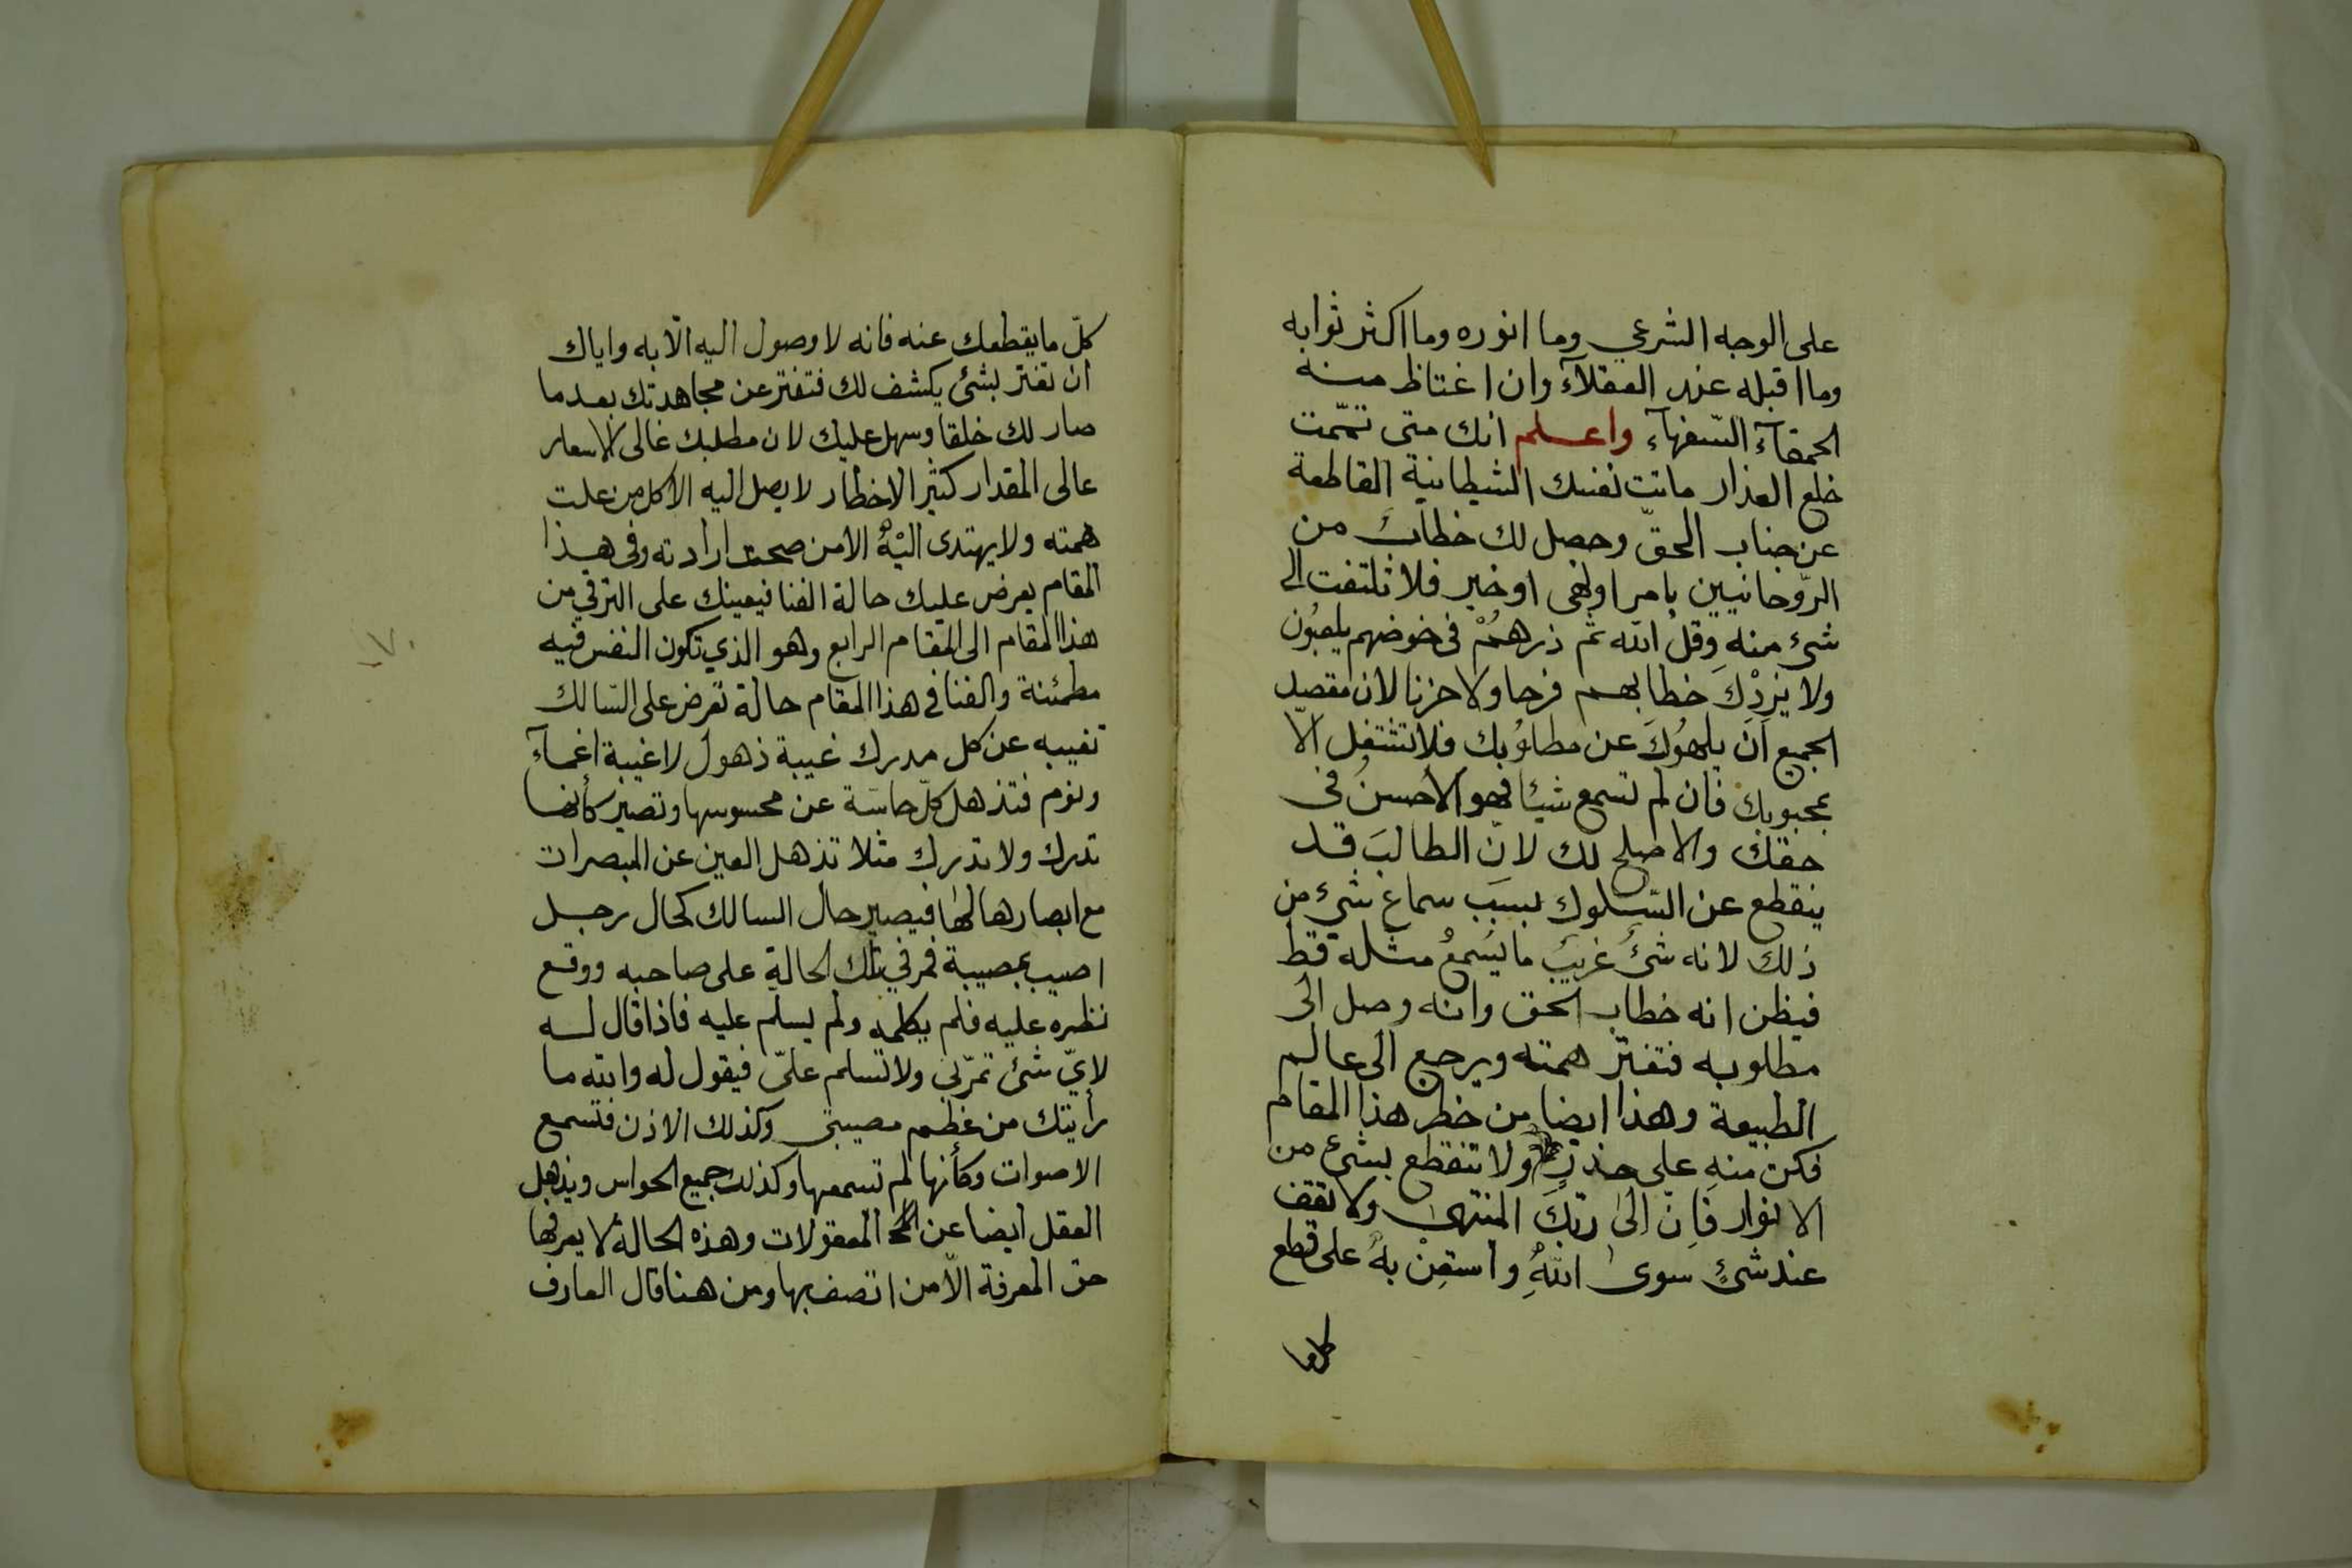 على الوجه الشرعي وما انوره وما اكثر ثوابه
وما اقبله عند العقلآء وان اغتاظ منه
الحمقآء السّفهآء واعلم انك متى تمّمت
خلع العذار ماتت نفسك الشيطانية القاطعة
عن جناب الحقّ وحصل لك خطاب من
الرّوحانيين بامر او نهى او خير فلا تلتفت الى
شئ منه وقل الله ثم ذرهم فى خوضهم يلعبون
ولا يزدك خطابهم فرحا ولا حزنا لان مقصد
الجميع ان يلهوك عن مطلوبك فلا تشتغل الّا
بمحبوبك فان لم تسمع شيئا فهو الأحسن فى
حقك والاصلح لك لانّ الطالب قد
ينقطع عن السّلوك بسبب سماع شئ من
ذلك لانه شئ غريب ما يسمع مثله قط
فيظن انه خطاب الحق وانه وصل الى
مطلوبه فتفتر همته ويرجع الى عالم
الطبيعة وهذا ايضا من خطر هذا المقام
فكن منه على حذر ولا تنقطع بشئ من
الانوار فانّ الى ربّك المنتهى ولا تقف
عند شئ سوى الله واستعن به على قطع
كل ما
كلّ ما يقطعك عنه فانه لا وصول اليه الّا به واياك
ان تغتر بشئ يكشف لك فتفتر عن مجاهدتك بعد ما
صار لك خلقا وسهل عليك لان مطلبك غالى الاسعار
عالى المقدار كثير الاخطار لا يصل اليه الا كل من علت
همته ولا يهتدى اليه الا من صحت ارادته وفى هذا
المقام يعرض عليك حالة الفنا فيعينك على الترقي من
هذا المقام الى المقام الرابع وهو الذي تكون النفس فيه
مطمئنة والفنا في هذا المقام حالة تعرض على السّالك
تغيبه عن كل مدرك غيبة ذهول لا غيبة اغمآء
ونوم فتذهل كلّ حاسّة عن محسوسها وتصير كأنها
تدرك ولا تدرك مثلا تذهل العين عن المبصرات
مع ابصارها لها فيصير حال السالك كحال رجل
اصيب بمصيبة فمر في تلك الحالة على صاحبه ووقع
نظره عليه فلم يكلمه ولم يسلّم عليه فاذا قال له
لايّ شئ تمرّ بي ولا تسلم علىّ فيقول له والله ما
رأيتك من عظم مصيبتي وكذلك الاذن فتسمع
الاصوات وكأنها لم تسمعها وكذلك جميع الحواس ويذهل
العقل ايضا عن المعقولات وهذه الحالة لا يعرفها
حق المعرفة الّا من اتصف بها ومن هنا قال العارف